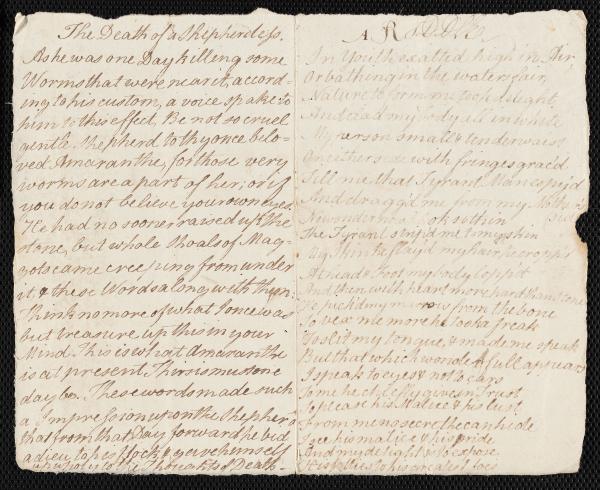 The Death of a Shepherdess.
As he was one Day killing some
Worms that were near it, accord-
ing to his custom, a voice spake to
him to this effect. Be not so cruel
gentle Shepherd to thy once belo-
ved Amaranthe, for those very
worms are a part of her; or if
you do not believe your own eyes
He had no sooner raised up the
stone, but whole shoals of Mag-
gots came creeping from under
it & these Words along with them
Think no more of what I once was
but treasure up this in your
Mind. This is what Amaranthe
is at present Thou must one
day be. These words made such
a Impression upon the Shepherd
that from that Day forward he bid
adieu to his flock, & gave himself
wholly to the Thoughts of Death
A Riddle
In Youth exalted high in Air,
Or bathing in the waters fair,
Nature to form me took delight,
And clad my body all in white
My person small & tender waist
On either side with fringes grac'd
Till me that Tyrant Man espy'd
And dragg'd me from my Mother's
side
No wonder now I look so thin
The Tyrant strip'd me to my skin
My skin he flay'd my hair he cropt
At head & foot my body lopp't
And then with heart more hard than stone
He pick'd my marrow from the bone
To vex me more he took a freak
To slit my tongue, & made me speak
But that which wonderfull appears
I speak to eyes & not to ears
To please his Malice & his lust
From me no secret he can hide
I see his malice & his pride
And my delight is to expose
His follies to his greatest foes